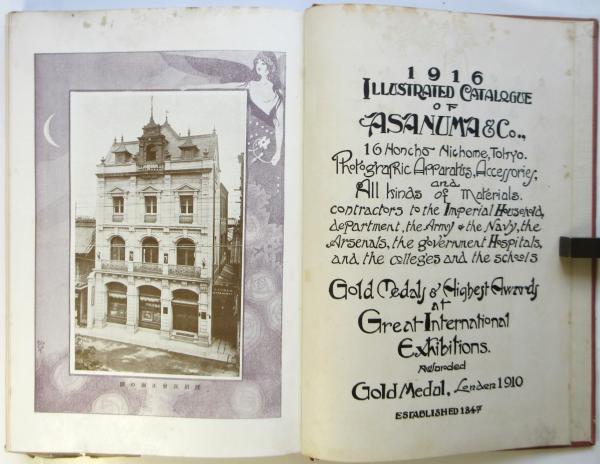 1916
ILLUSTRATED CATALOGUE
OF
ASANUMA & Co.,
16 Honcho Nichome, Tokyo.
Photographic Apparatus, Accessories,
and
All kinds of Materials.
contractors to the Imperial Household,
department, the Army & the Navy, the
Arsenals, the government Hospitals,
and the colleges and the schools
Gold Medals & Highest Awards
at
Great International
Exhibitions.
Gold Medal, London 1910
ESTABLISHED 1847